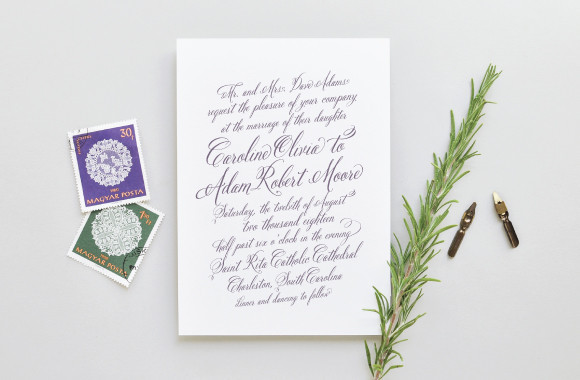 Mr. and Mrs. Dave Adams
request the pleasure of your company,
at the marriage of their daughter
Caroline Olivia to
Adam Robert Moore
Saturday, the twelfth of August
two thousand eighteen
Half past six o'clock in the evening
Saint Rita Catholic Cathedral
Charleston, South Carolina
Dinner and dancing to follow
30
MAGYAR POSTA
1
MAGYAR POSTA